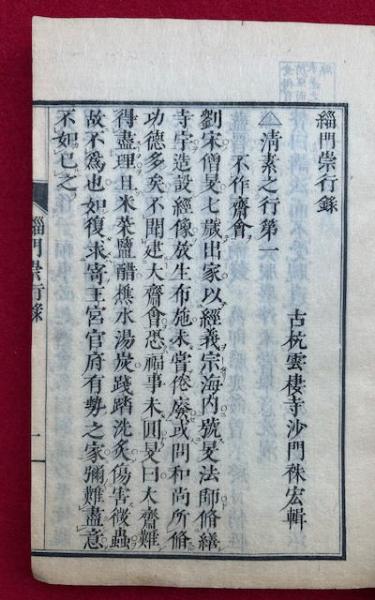 緇門崇行錄
古杭雲棲寺沙門袾宏輯
清素之行第一
不作齋會
劉宋僧旻七歲出家以經義宗海內號旻法師脩繕
寺宇造設經像放生布施未嘗倦廢或問和尚所脩
功德多矣不聞建大齋會恐福事未圓旻曰大齋難
得盡理且米菜鹽醋樵水湯炭踐踏洗炙傷害微蟲
故不爲也如復求寄王宮官府有勢之家彌難盡意
不如已之
緇門崇行錄
一